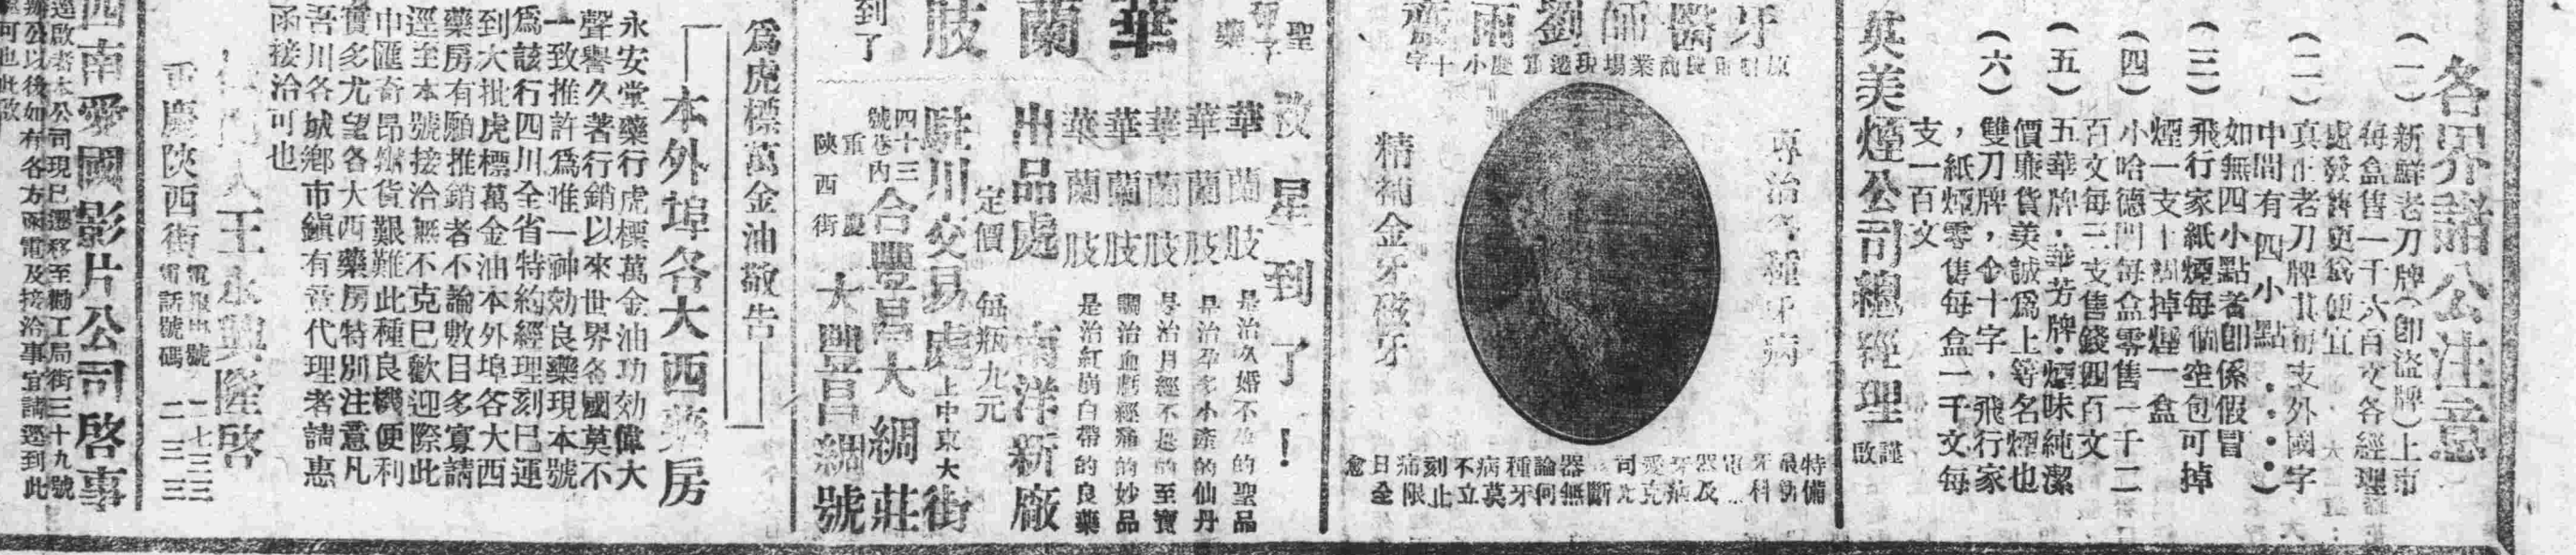 各界諸公注意
(一)新鮮老刀牌(卽盜牌)上市
每盒售一千六百文各經理
處發售更為便宜
(二)真正老刀牌其每支外國字
中間有四小點
如無四小點者卽係假冒
(三)飛行家紙煙每個空包可掉
煙一支十個掉煙一盒
(四)小哈德門每盒零售一千二
百文每三支售錢四百文
(五)五華牌・華芳牌・煙味純潔
價廉貨美誠爲上等名煙也
(六)雙刀牌,金十字,飛行家
,紙煙零售每盒一千文每
支一百文
英美煙公司總經理
謹啟
牙醫師劉雨齋
專治各種牙病
精補金牙磁牙
特備
最新
牙科
電
器及
牙病
愛克
司光
器無
論何
種牙
病莫
不立
刻止
痛限
日全
愈
聖
藥
華蘭肢
到了
救星到了!
華蘭肢 是治久婚不孕的聖品
華蘭肢 是治孕多小產的仙丹
華蘭肢 是治月經不是的至寶
華蘭肢 調治血虧經痛的妙品
華蘭肢 是治紅崩白帶的良藥
出品處 南洋新廠
定價 每瓶九元
駐川交易處 上中東大街
四十三
號巷內
合豐昌大綢莊
重慶
陝西街
大豐昌綢號
爲虎標萬金油敬告
本外埠各大西藥房
永安堂藥行虎標萬金油功効偉大
聲譽久著行銷以來世界各國莫不
一致推許爲唯一神効良藥現本號
爲該行四川全省特約經理刻已運
到大批虎標萬金油本外埠各大西
藥房有願推銷者不論數目多寡請
逕至本號接洽無不克已歡迎際此
申匯奇昂辦貨艱難此種良機便利
實多尤望各大西藥房特別注意凡
吾川各城鄉市鎮有意代理者請惠
函接洽可也
王永興隆啓
重慶陝西街
電報掛號 二七三三
電話號碼 二三三
西南愛國影片公司啓事
逕啟者本公司現已遷移至勸工局街三十九號
辦公以後如有各方函電及接洽事宜請逕到此
處可也此啟